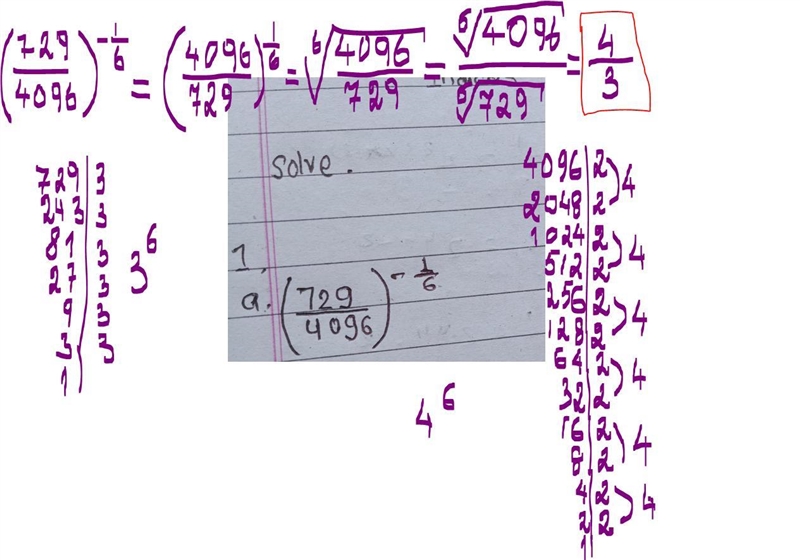 (729/4096)^(-1/6) = (4096/729)^(1/6) = ⁶√(4096/729) = ⁶√4096/⁶√729 = 4/3
Solve.
1.
a. (729/4096)^(-1/6)
729 | 3
243 | 3
81 | 3
27 | 3
9 | 3
3 | 3
1 |
3^6
4096 | 2
2048 | 2 ) 4
1024 | 2
512 | 2 ) 4
256 | 2
128 | 2 ) 4
64 | 2
32 | 2 ) 4
16 | 2
8 | 2 ) 4
4 | 2
2 | 2 ) 4
1 |
4^6